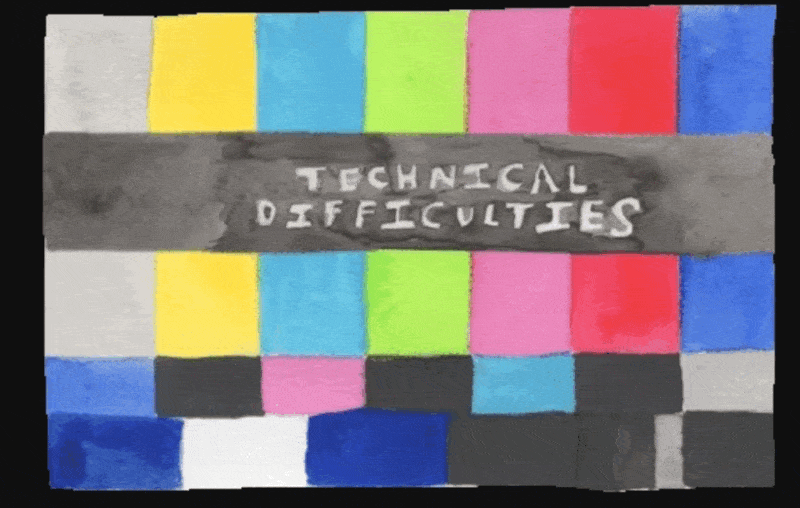 TECHNICAL
DIFFICULTIES